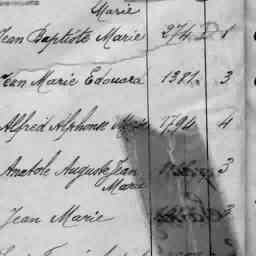 Marie
Jean Baptiste Marie 274 D 1
Jean Marie Edouard 1381 3
Alfred Alphonse 1794 4
Anatole Auguste Jean 3
Marie
Jean Marie 3